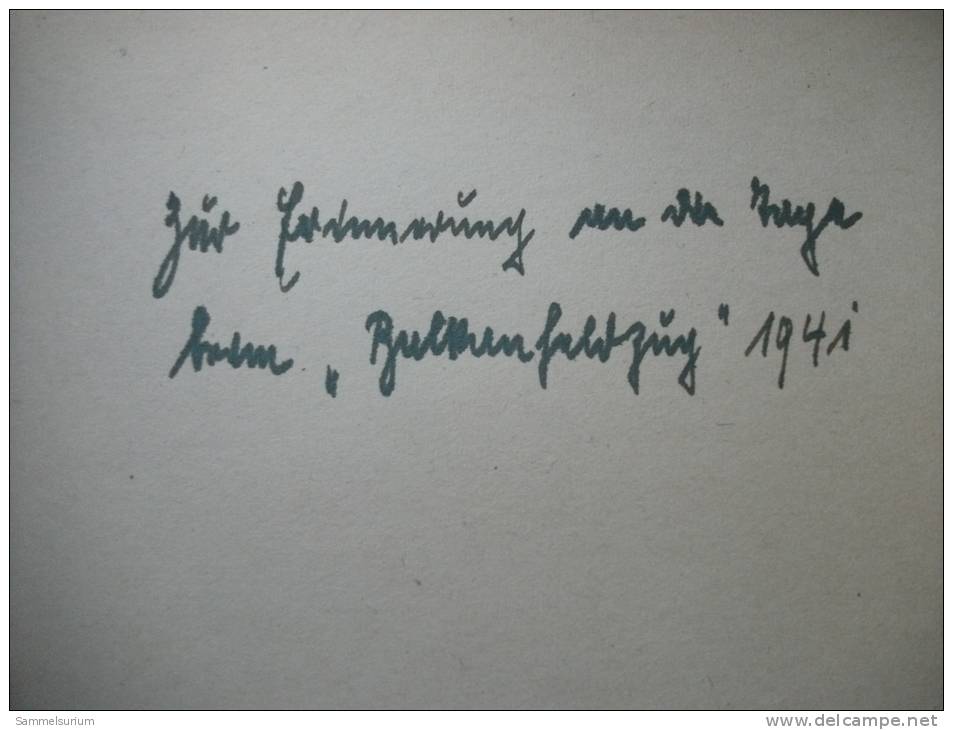 Zur Erinnerung an die Tage
beim „Balkanfeldzug" 1941
Sammelsurium
www.delcampe.net